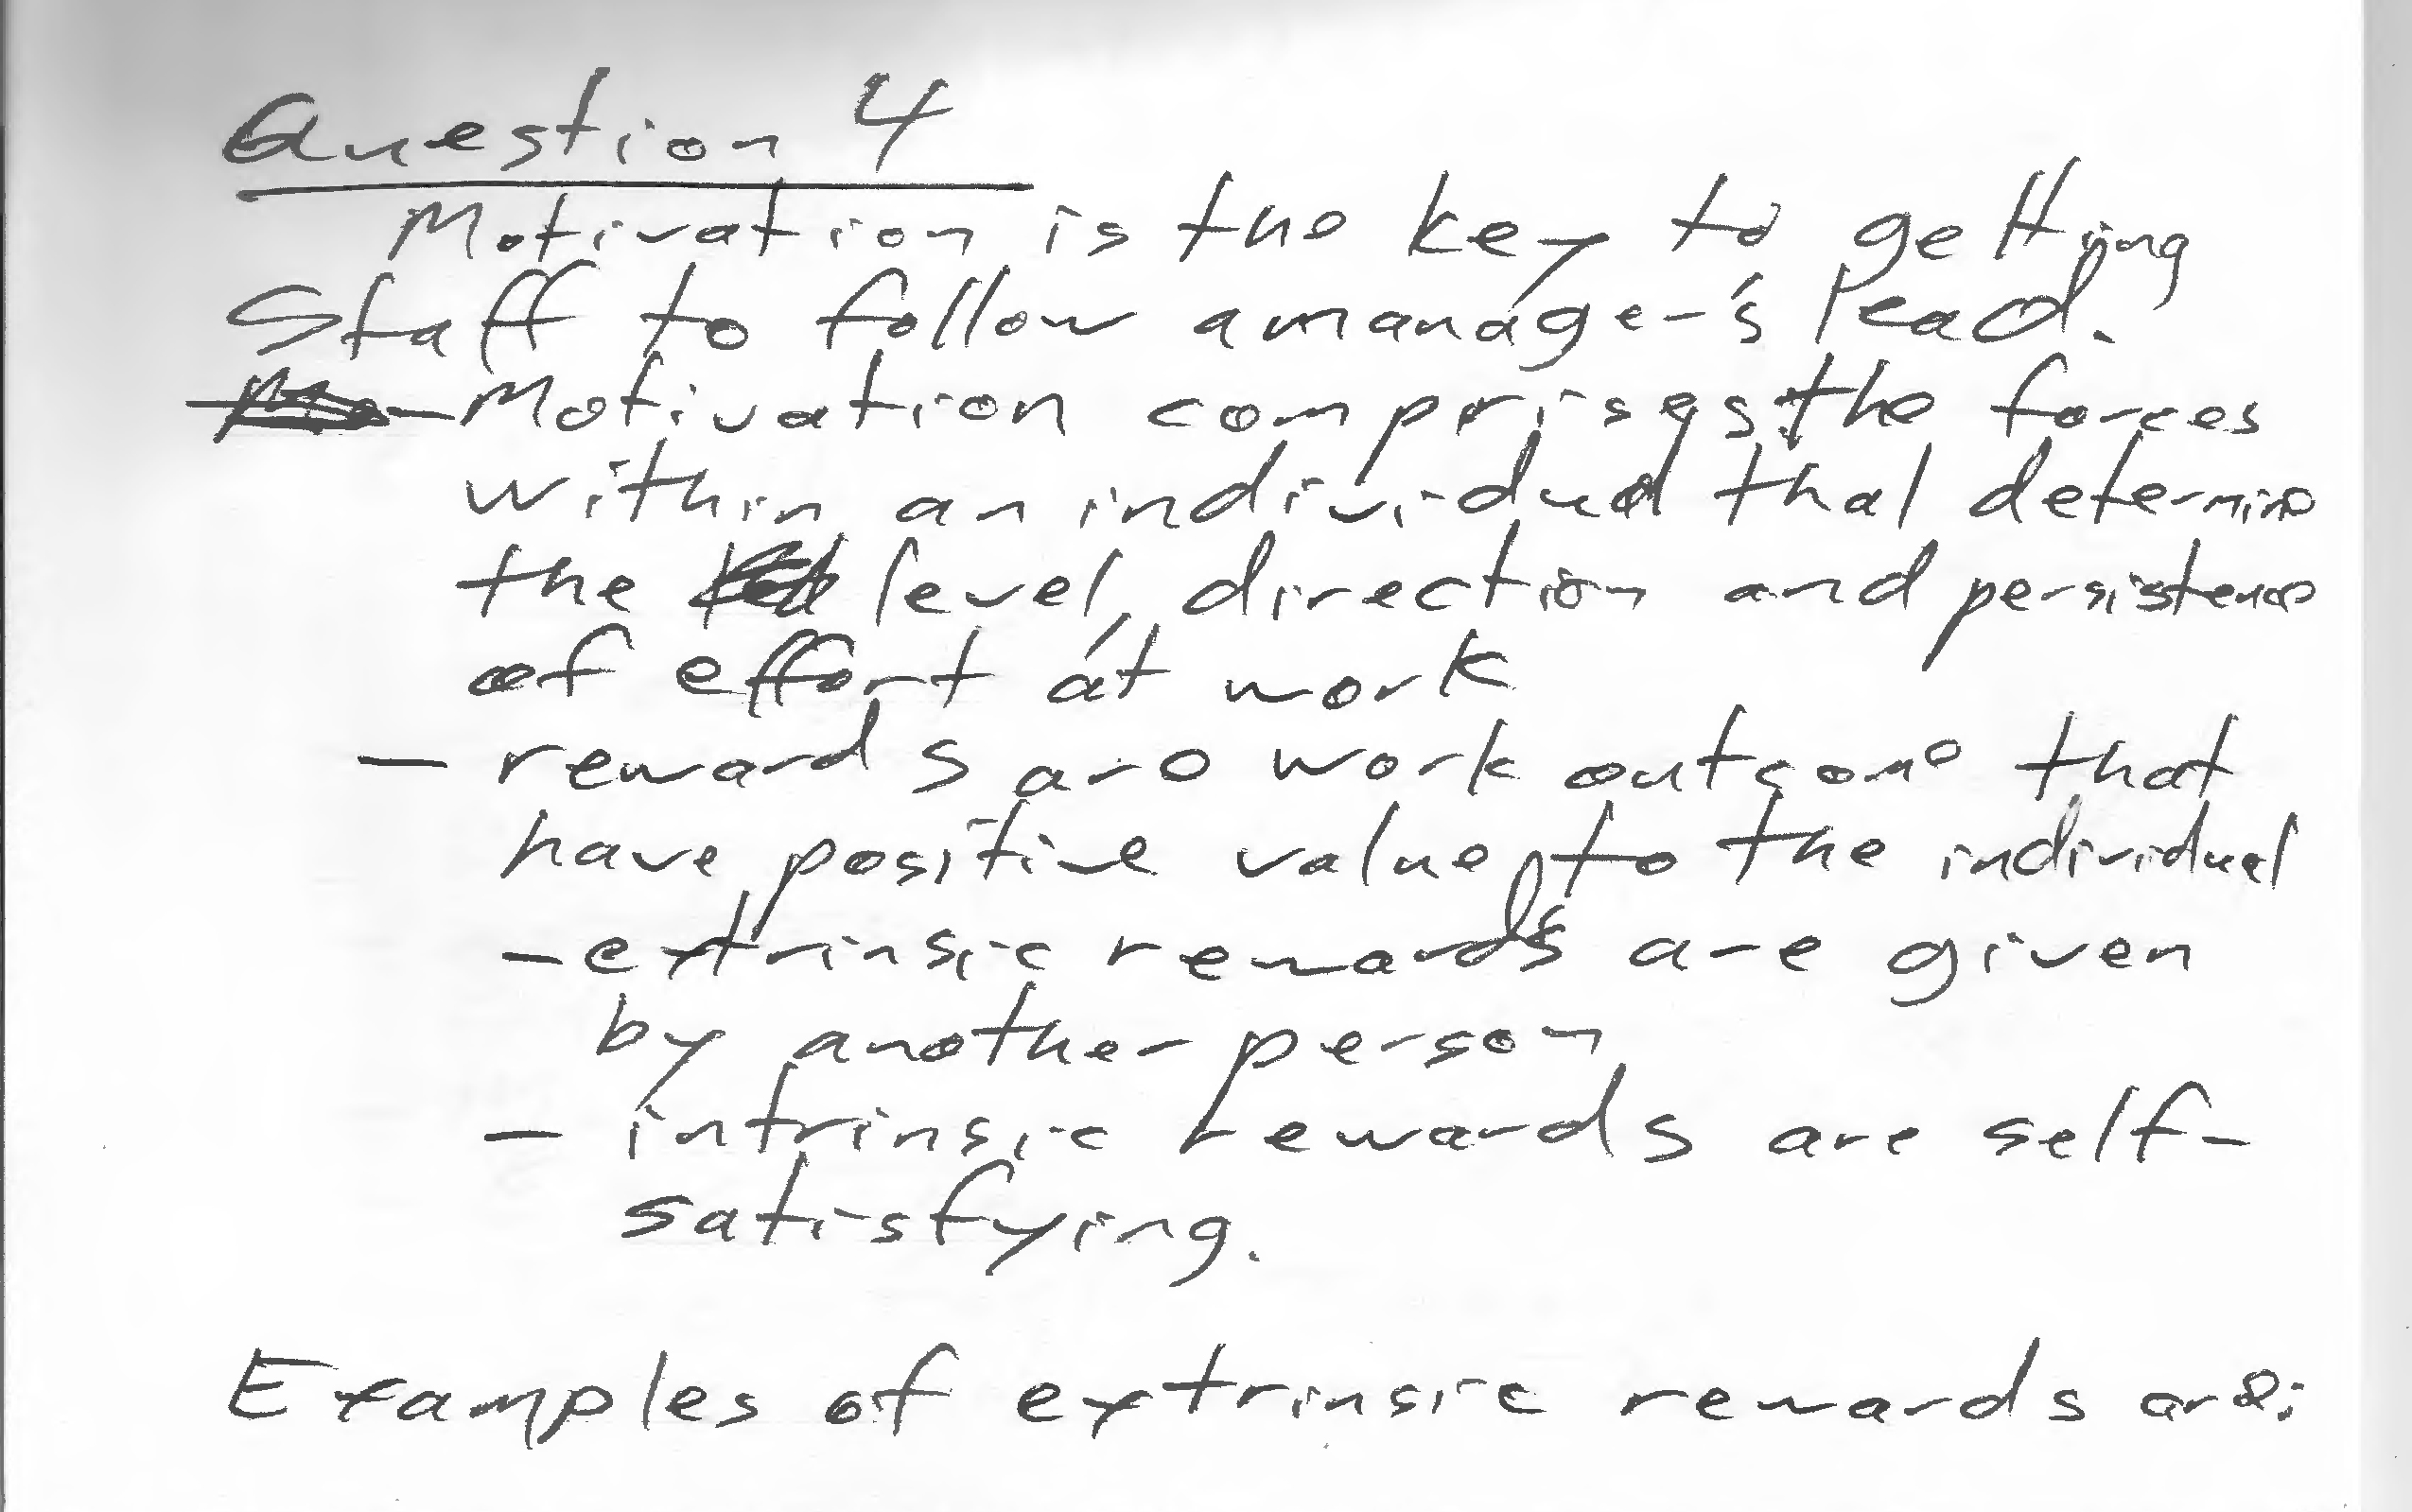 Question 4
Motivation is the key to getting
Staff to follow a manager's lead.
- Motivation comprises the forces
within an individual that determine
the level, direction and persistence
of effort at work
- rewards are work outcome that
have positive value to the individual
- extrinsic rewards are given
by another person
- intrinsic rewards are self-
satisfying.
Examples of extrinsic rewards are: